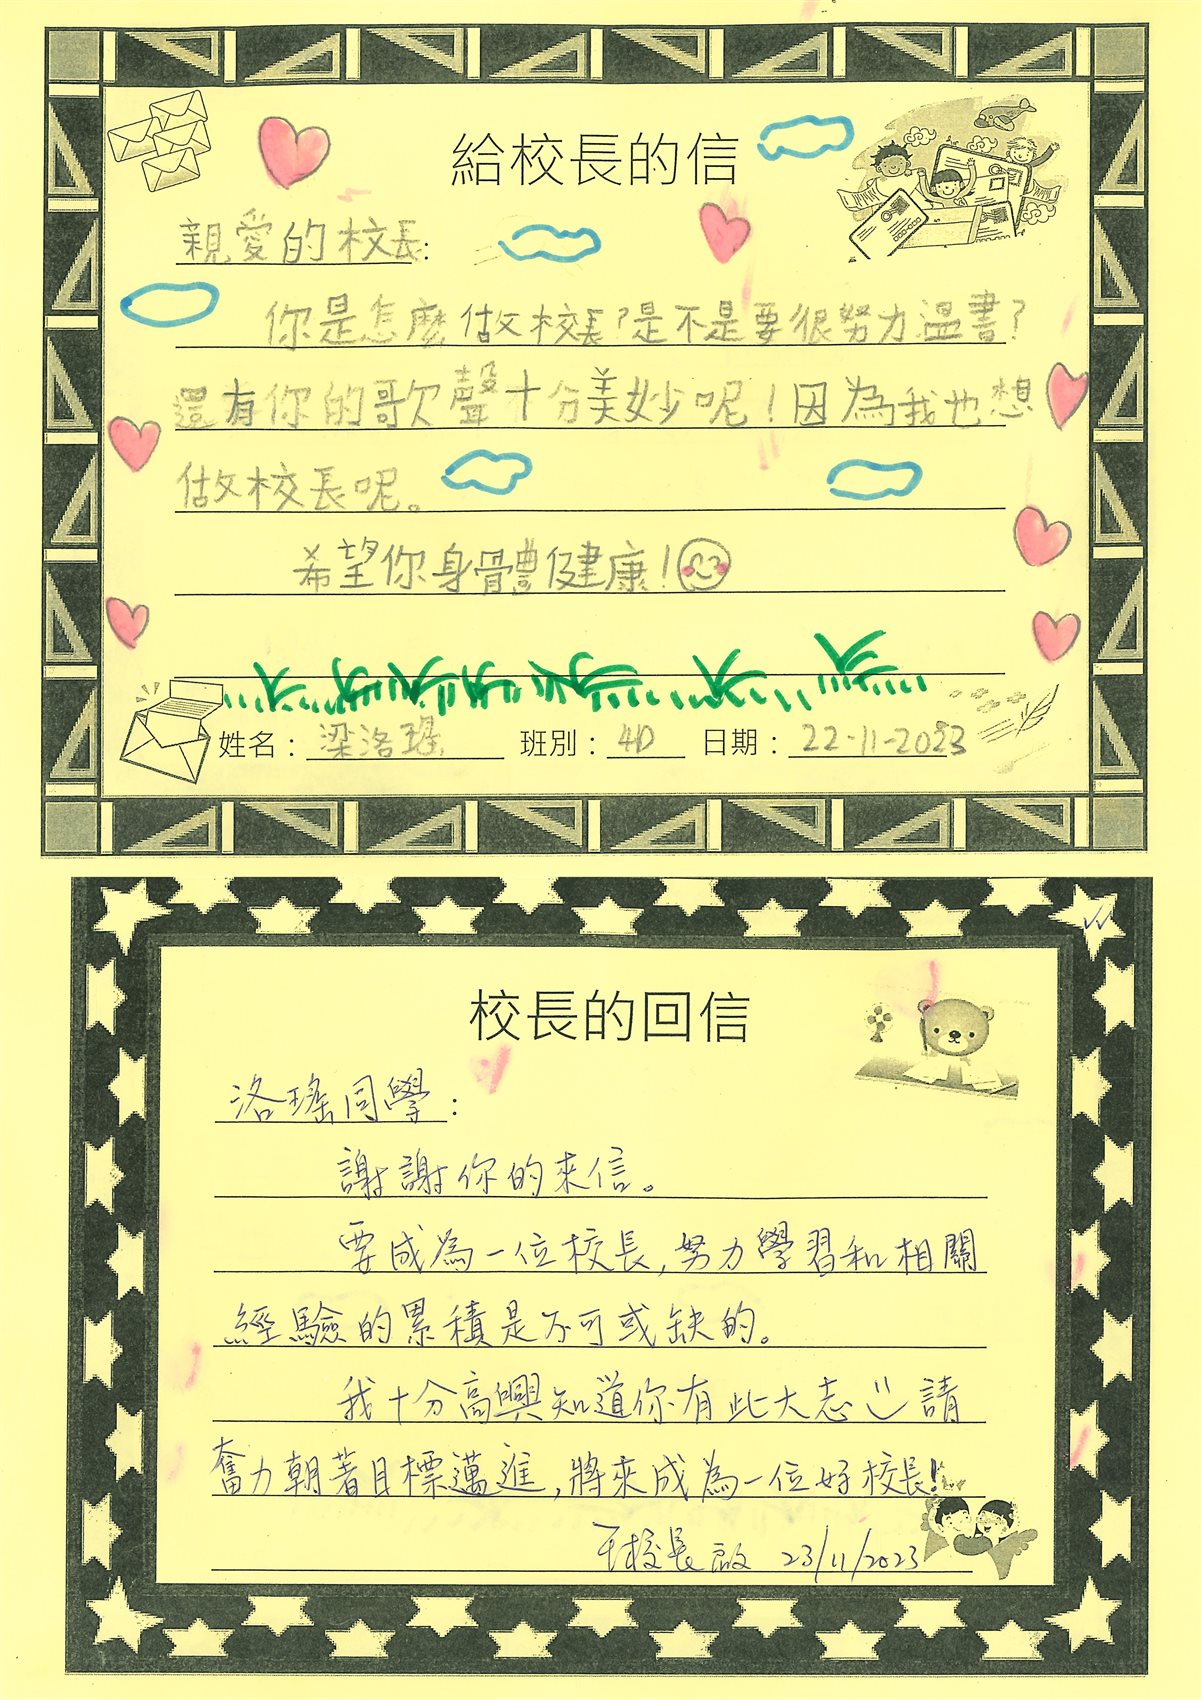 給校長的信
親愛的校長:
你是怎麼做校長?是不是要很努力溫書?
還有你的歌聲十分美妙呢!因為我也想
做校長呢。
希望你身體健康!
姓名:梁洛瑤 班別:4D 日期:22-11-2023
校長的回信
洛瑤同學:
謝謝你的來信。
要成為一位校長,努力學習和相關
經驗的累積是不可或缺的。
我十分高興知道你有此大志 請
奮力朝著目標邁進,將來成為一位好校長!
王校長啟 23/11/2023